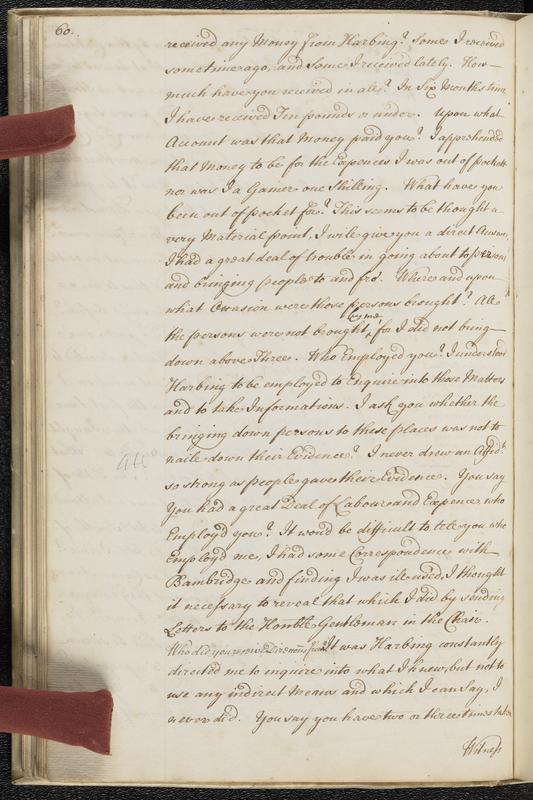 60.
received any Money from Harbing? Some I received
sometime ago, and Some I received lately. How
much have you received in all? In Six Months time
I have received Ten pounds or under. Upon what
Account was that Money paid you? I apprehended
that Money to be for the Expences I was out of pocket
nor was I a Gainer one Shilling. What have you
been out of pocket for? This seems to be thought a
very Material point, I will give you a direct Answer,
I had a great deal of trouble in going about to persons
and bringing people to and fro. Where and upon
what Occasion were those persons brought? All
the persons were not brought by me, for I did not bring
down above Three. Who Employed you? I understood
Harbing to be employed to Enquire into those Matters
and to take Informations. I ask you whether the
bringing down persons to these places was not to
naile down their Evidence? I never drew an Affidt.
so strong as people gave their Evidence. You say
You had a great Deal of Labour and Expence, who
Employ'd you? It would be difficult to tell you who
Employ'd me, I had some Correspondence with
Bambridge and finding I was ill used, I thought
it necessary to reveal that which I did by sending
Letters to the Honble Gentleman in the Chair.
Who did you receive directions from? It was Harbing constantly
directed me to inquire into what I knew, but not to
use any indirect Means and which I can say, I
never did. You say you have two or three times
Witness